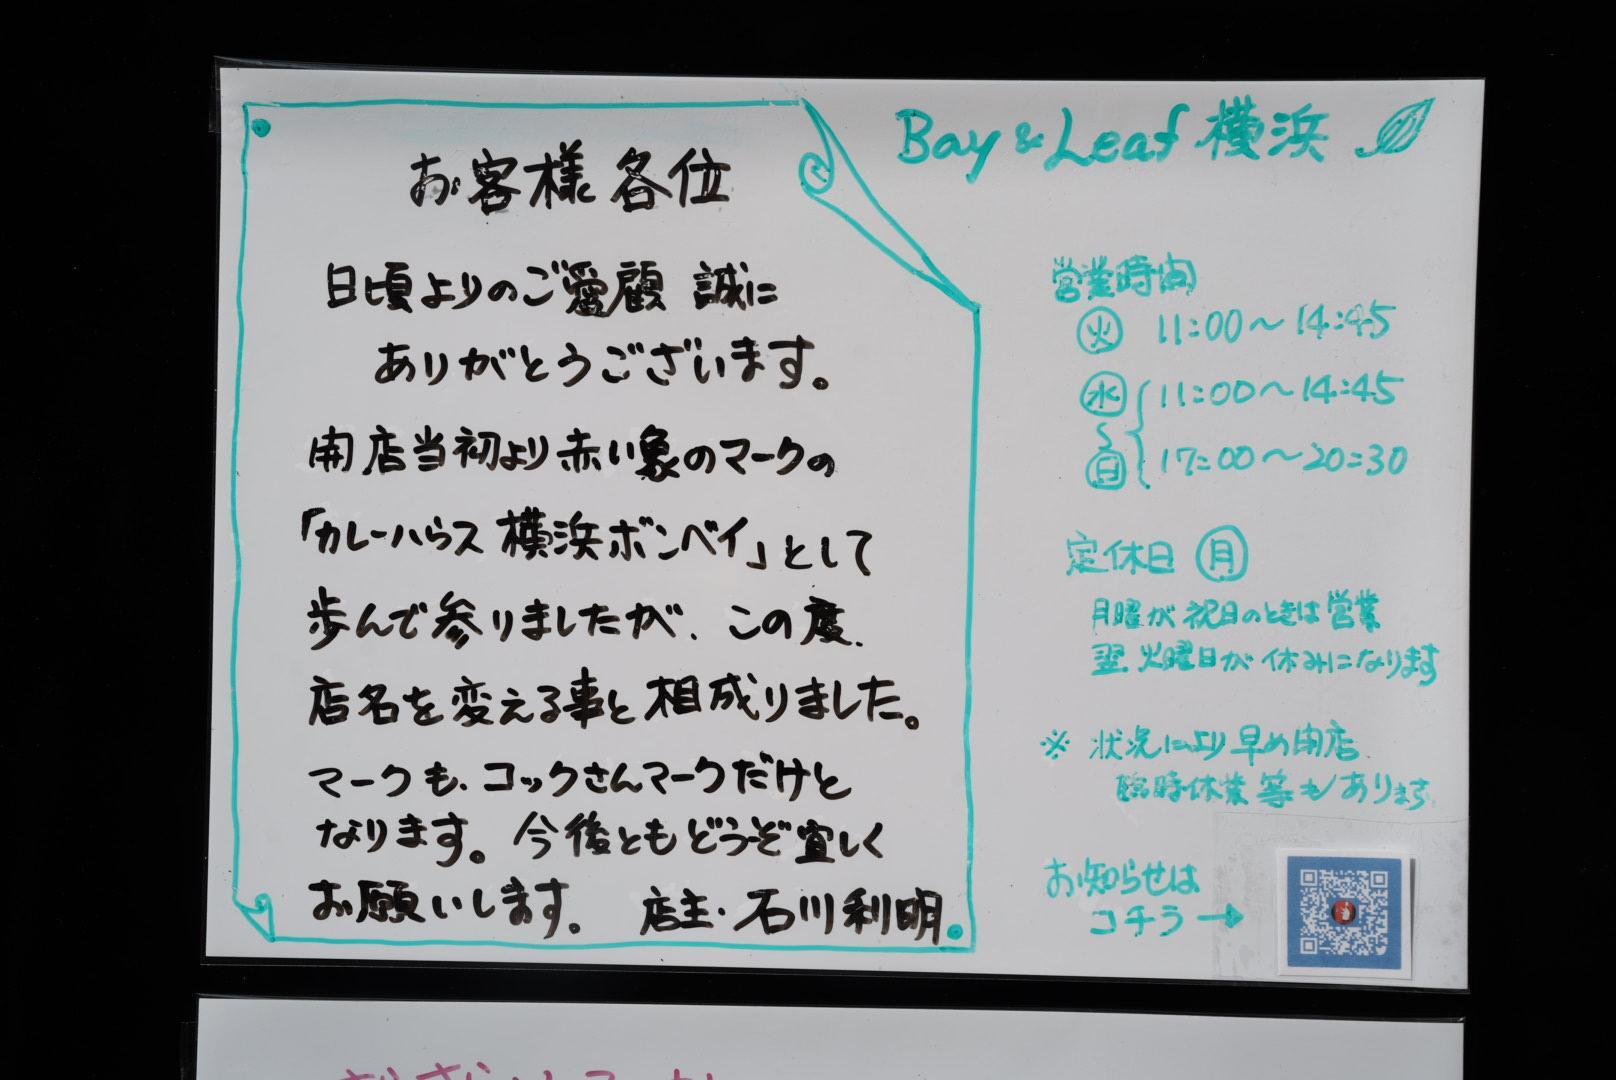 お客様各位
日頃よりのご愛顧 誠に
ありがとうございます。
開店当初より赤い象のマークの
「カレーハウス 横浜ボンベイ」として
歩んで参りましたが、この度、
店名を変える事と相成りました。
マークも、コックさんマークだけと
なります。今後ともどうぞ宜しく
お願いします。 店主・石川利明
Bay & Leaf 横浜
営業時間
火 11:00〜14:45
水 11:00〜14:45
〜
日 17:00〜20:30
定休日 月
月曜が祝日のときは営業
翌火曜日が休みになります
※ 状況により早め閉店、
臨時休業等もあります。
お知らせは
コチラ→